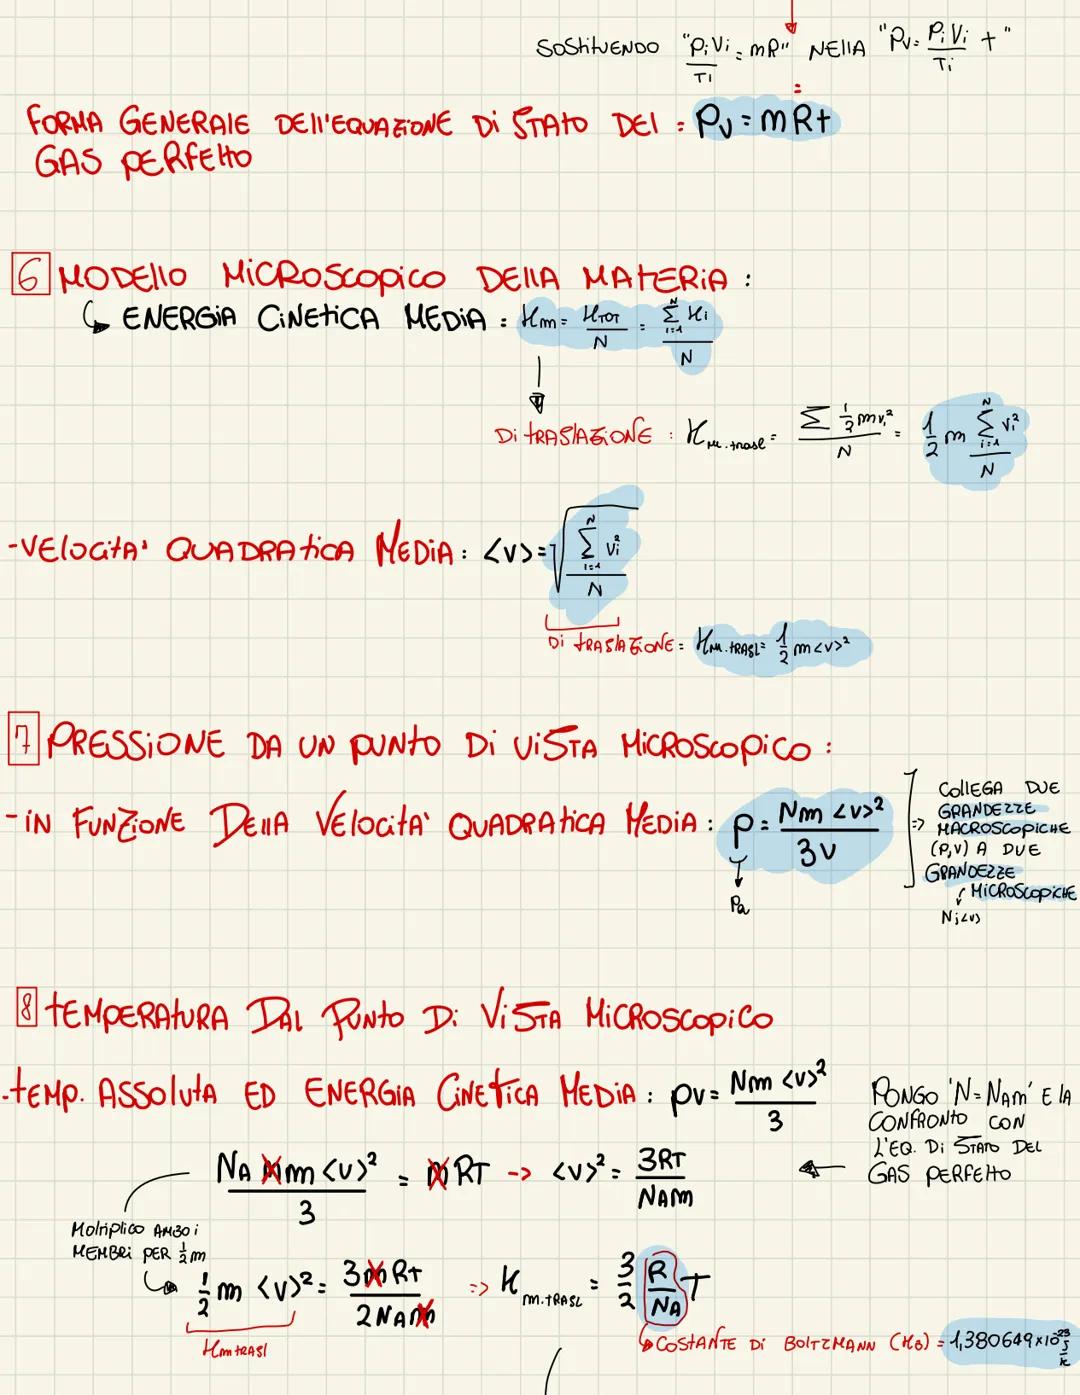 SOSTITUENDO "PiVi/Ti = mR" NELLA "PV = PiVi/Ti t"
FORMA GENERALE DELL'EQUAZIONE Di STATO DEL : PV = mRt
GAS PERFETTO
6 MODELLO MiCROSCOPICO DELLA MATERiA :
↳ ENERGiA CiNETiCA MEDiA : Km = KTOT/N = Σ(i=1→N) Ki/N
Di TRASLAZiONE : Km.trasl = Σ ½ m vi²/N = ½ m Σ(i=1→N) vi²/N
-VELOCiTA' QUADRATiCA MEDiA : <v> = √(Σ(i=1→N) vi²/N)
Di TRASLAZiONE = Km.TRASL = ½ m <v>²
7 PRESSIONE DA UN PUNTO Di ViSTA MiCROSCOPiCO :
-iN FUNZiONE DELLA VELOCiTA' QUADRATiCA MEDiA : p = Nm <v>²/3V
Pa
=> COLLEGA DUE
GRANDEZZE
MACROSCOPiCHE
(P,V) A DUE
GRANDEZZE
MiCROSCOPiCHE
N;<v>
8 TEMPERATURA DAL PUNTO Di ViSTA MiCROSCOPiCO
-TEMP. ASSOLUTA ED ENERGiA CiNETiCA MEDiA : pv = Nm <v>²/3
PONGO 'N=NAm' E LA
CONFRONTO CON
L'EQ. Di STATO DEL
GAS PERFETTO
NA m m <v>²/3 = m RT -> <v>² = 3RT/NAm
MOLTIPLICO AMBO i
MEMBRi PER ½ m
½ m <v>² = 3mRT/2NAm => Km.TRASL = 3/2 R/NA T
Km TRASL
↳ COSTANTE Di BOLTZMANN (KB) = 1,380649×10⁻²³ J/K